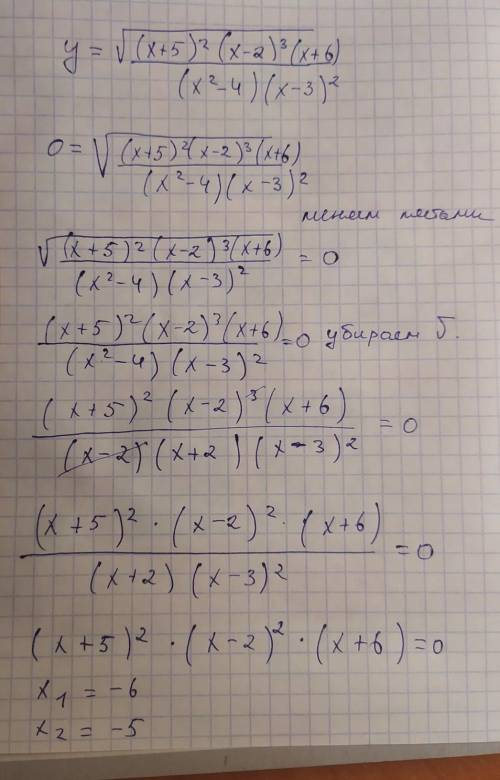 y = √((x+5)² (x-2)³ (x+6) / (x²-4)(x-3)²)
0 = √((x+5)²(x-2)³(x+6) / (x²-4)(x-3)²)
меняем местами
√((x+5)²(x-2)³(x+6) / (x²-4)(x-3)²) = 0
(x+5)²(x-2)³(x+6) / (x²-4)(x-3)² = 0 убираем √.
(x+5)²(x-2)³(x+6) / (x-2)(x+2)(x-3)² = 0
(x+5)² · (x-2)² · (x+6) / (x+2)(x-3)² = 0
(x+5)² · (x-2)² · (x+6) = 0
x₁ = -6
x₂ = -5